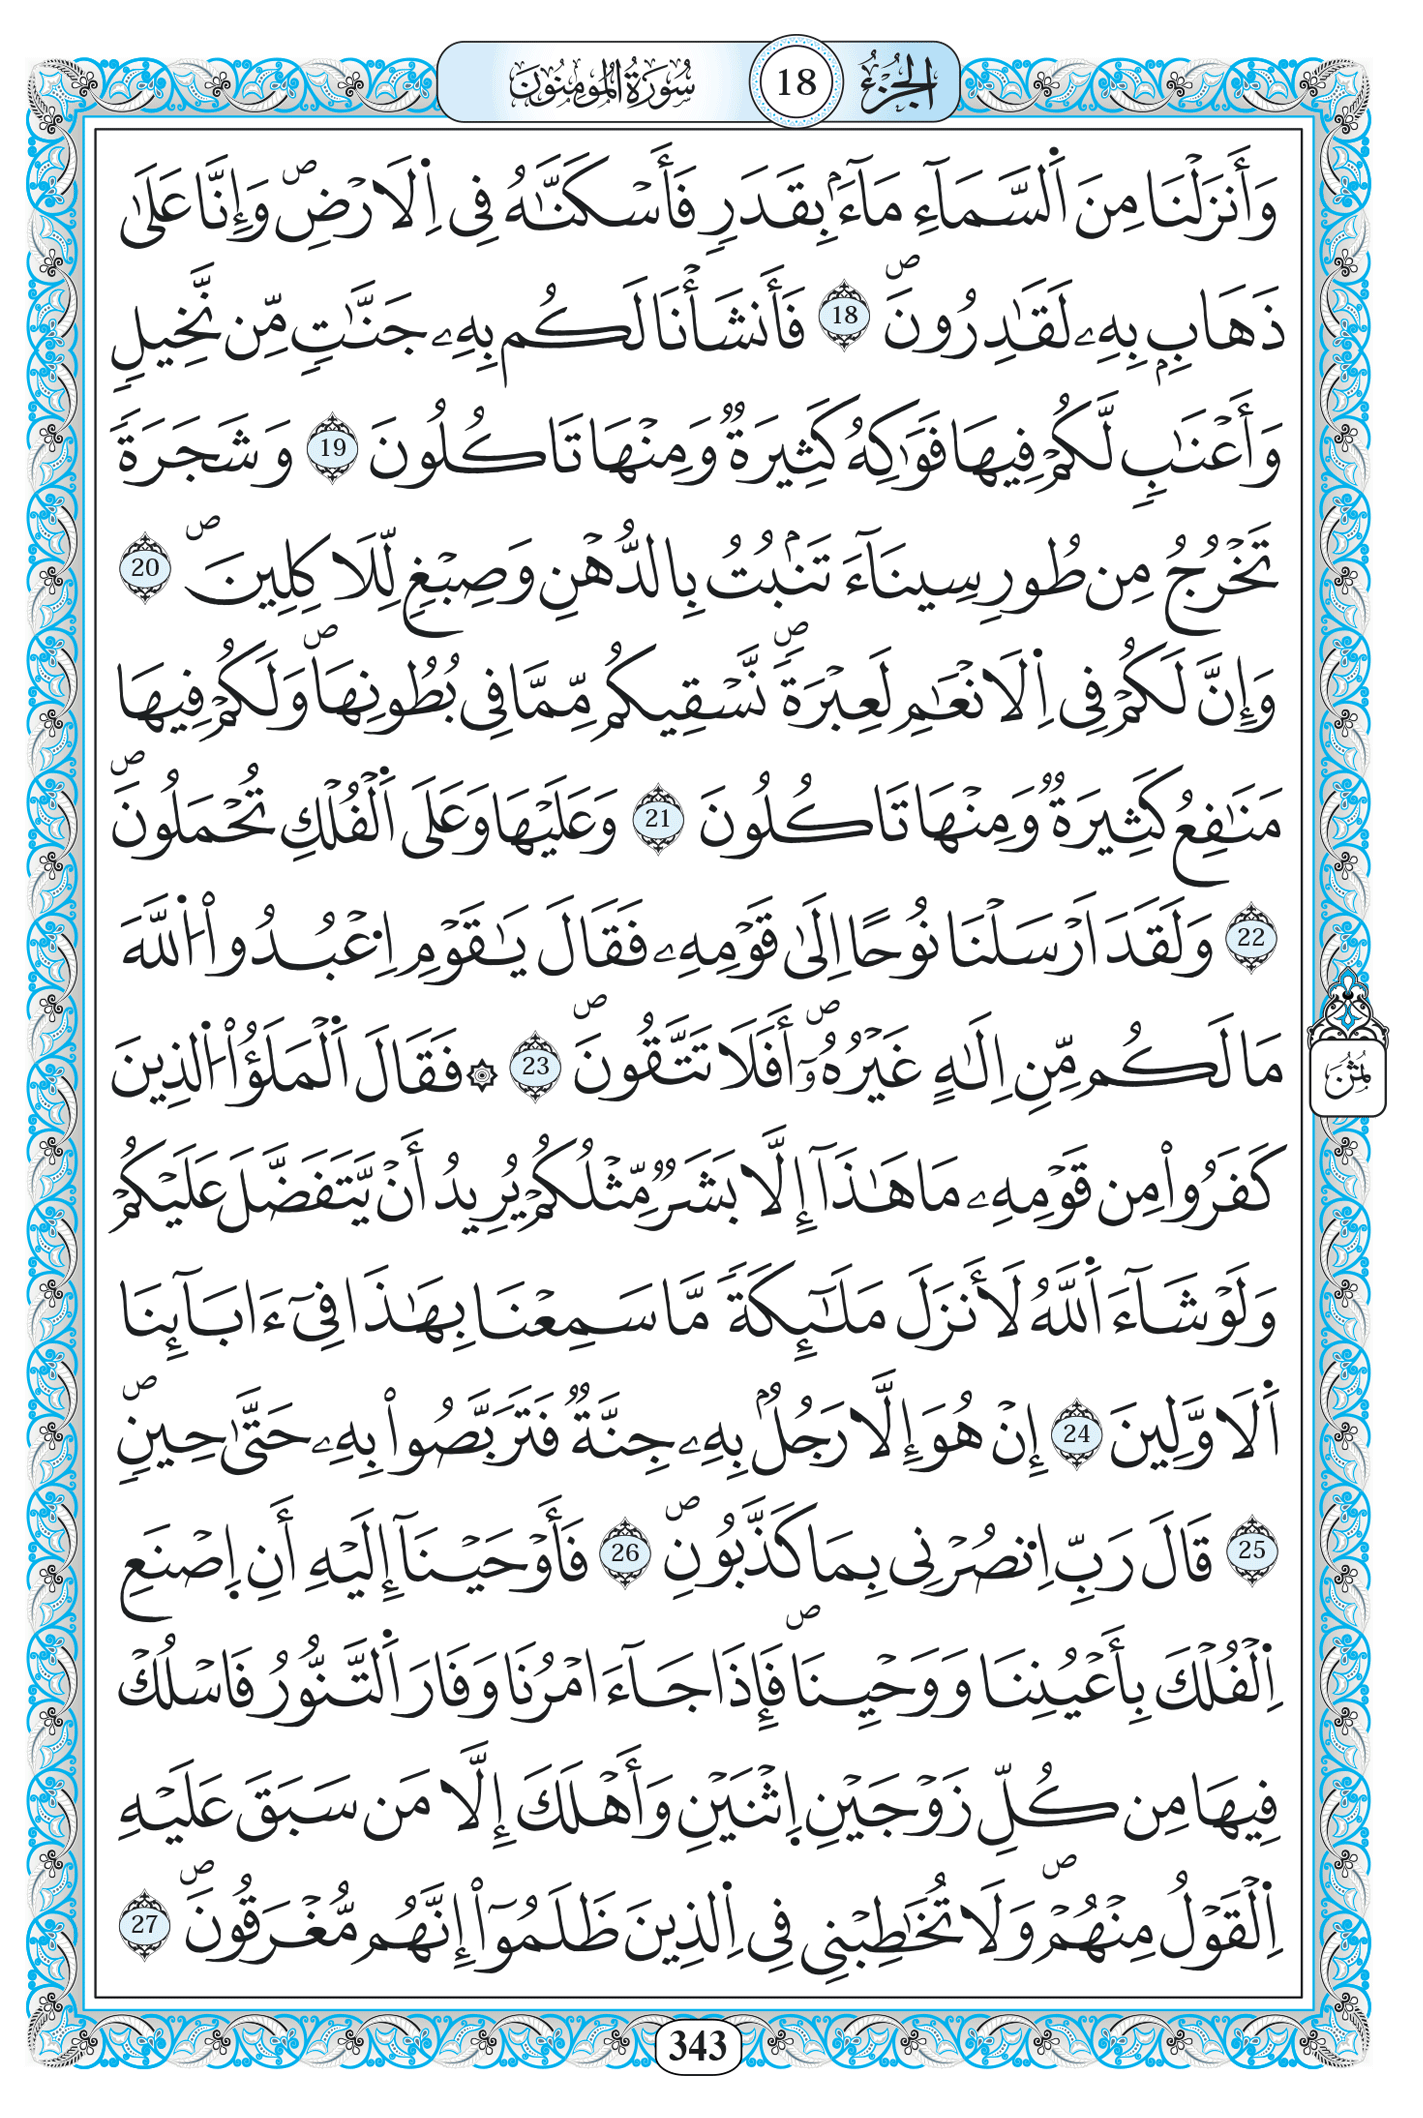 الجزء 18 سورة المومنون
وَأَنزَلْنَا مِنَ اَ۬لسَّمَآءِ مَآءَۢ بِقَدَرٖ فَأَسْكَنَّٰهُ فِے اِ۬لَارْضِۖ وَإِنَّا عَلَىٰ
ذَهَابِۢ بِهِۦ لَقَٰدِرُونَۖ 18 فَأَنشَأْنَا لَكُم بِهِۦ جَنَّٰتٖ مِّن نَّخِيلٖ
وَأَعْنَٰبٖ لَّكُمْ فِيهَا فَوَٰكِهُ كَثِيرَةٞ وَمِنْهَا تَاكُلُونَ 19 وَشَجَرَةٗ
تَخْرُجُ مِن طُورِ سِينَآءَ تَنۢبُتُ بِالدُّهْنِ وَصِبْغٖ لِّلَاكِلِينَۖ 20
وَإِنَّ لَكُمْ فِے اِ۬لَانْعَٰمِ لَعِبْرَةٗۖ نَّسْقِيكُم مِّمَّا فِے بُطُونِهَاۖ وَلَكُمْ فِيهَا
مَنَٰفِعُ كَثِيرَةٞ وَمِنْهَا تَاكُلُونَ 21 وَعَلَيْهَا وَعَلَى اَ۬لْفُلْكِ تُحْمَلُونَۖ
22 وَلَقَدَ اَرْسَلْنَا نُوحًا اِلَىٰ قَوْمِهِۦ فَقَالَ يَٰقَوْمِ اِ۟عْبُدُواْ اُ۬للَّهَ
مَا لَكُم مِّنِ اِلَٰهٍ غَيْرُهُۥٓۖ أَفَلَا تَتَّقُونَۖ 23 ۞ فَقَالَ اَ۬لْمَلَؤُاْ اُ۬لذِينَ
كَفَرُواْ مِن قَوْمِهِۦ مَا هَٰذَآ إِلَّا بَشَرٞ مِّثْلُكُمْ يُرِيدُ أَنْ يَّتَفَضَّلَ عَلَيْكُمْ
وَلَوْ شَآءَ اَ۬للَّهُ لَأَنزَلَ مَلَٰٓئِكَةٗ مَّا سَمِعْنَا بِهَٰذَا فِےٓ ءَابَآئِنَا
اَ۬لَاوَّلِينَ 24 إِنْ هُوَ إِلَّا رَجُلُۢ بِهِۦ جِنَّةٞ فَتَرَبَّصُواْ بِهِۦ حَتَّىٰ حِينٖۖ
25 قَالَ رَبِّ اِ۟نصُرْنِے بِمَا كَذَّبُونِۖ 26 فَأَوْحَيْنَآ إِلَيْهِ أَنِ اِ۪صْنَعِ
اِ۬لْفُلْكَ بِأَعْيُنِنَا وَوَحْيِنَاۖ فَإِذَا جَآءَ امْرُنَا وَفَارَ اَ۬لتَّنُّورُ فَاسْلُكْ
فِيهَا مِن كُلِّ زَوْجَيْنِ اِ۪ثْنَيْنِ وَأَهْلَكَ إِلَّا مَن سَبَقَ عَلَيْهِ
اِ۬لْقَوْلُ مِنْهُمْۖ وَلَا تُخَٰطِبْنِے فِے اِ۬لذِينَ ظَلَمُوٓاْ إِنَّهُم مُّغْرَقُونَۖ 27
ثُمُنٌ
343